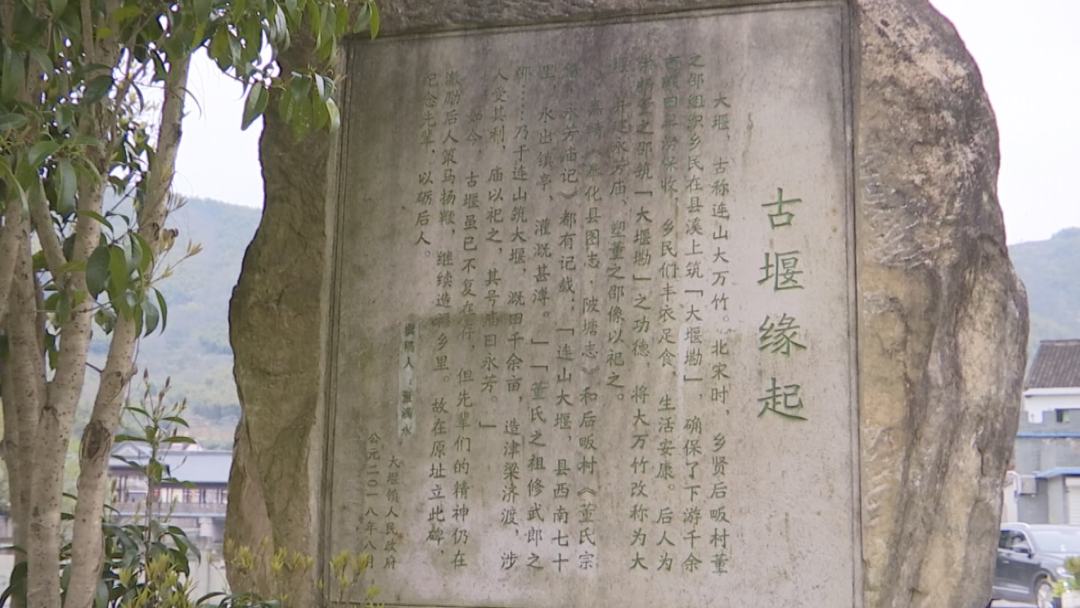 古堰缘起
大堰，古称连山大万竹。北宋时，乡贤后畈村董
之邵组织乡民在县溪上筑「大堰墈」，确保了下游千余
保收，乡民们丰衣足食，生活安康。后人为
之邵筑「大堰墈」之功德，将大万竹改称为大
堰，并建永芳庙，塑董之邵像以祀之。
奉化县图志·陂塘志》和后畈村《董氏宗
永芳庙记》都有记载：「连山大堰，县西南七十
里，水出镇亭，灌溉甚溥。」「董氏之祖修武郎之
邵……乃于连山筑大堰，溉田千余亩，造津梁济渡，涉
人受其利，庙以祀之，其号庙曰永芳。」
如今，古堰虽已不复存在，但先辈们的精神仍在
激励后人策马扬鞭，继续造福乡里。故在原址立此碑，
纪念先辈，以砺后人。
撰稿人
大堰镇人民政府
公元二〇一八年八月